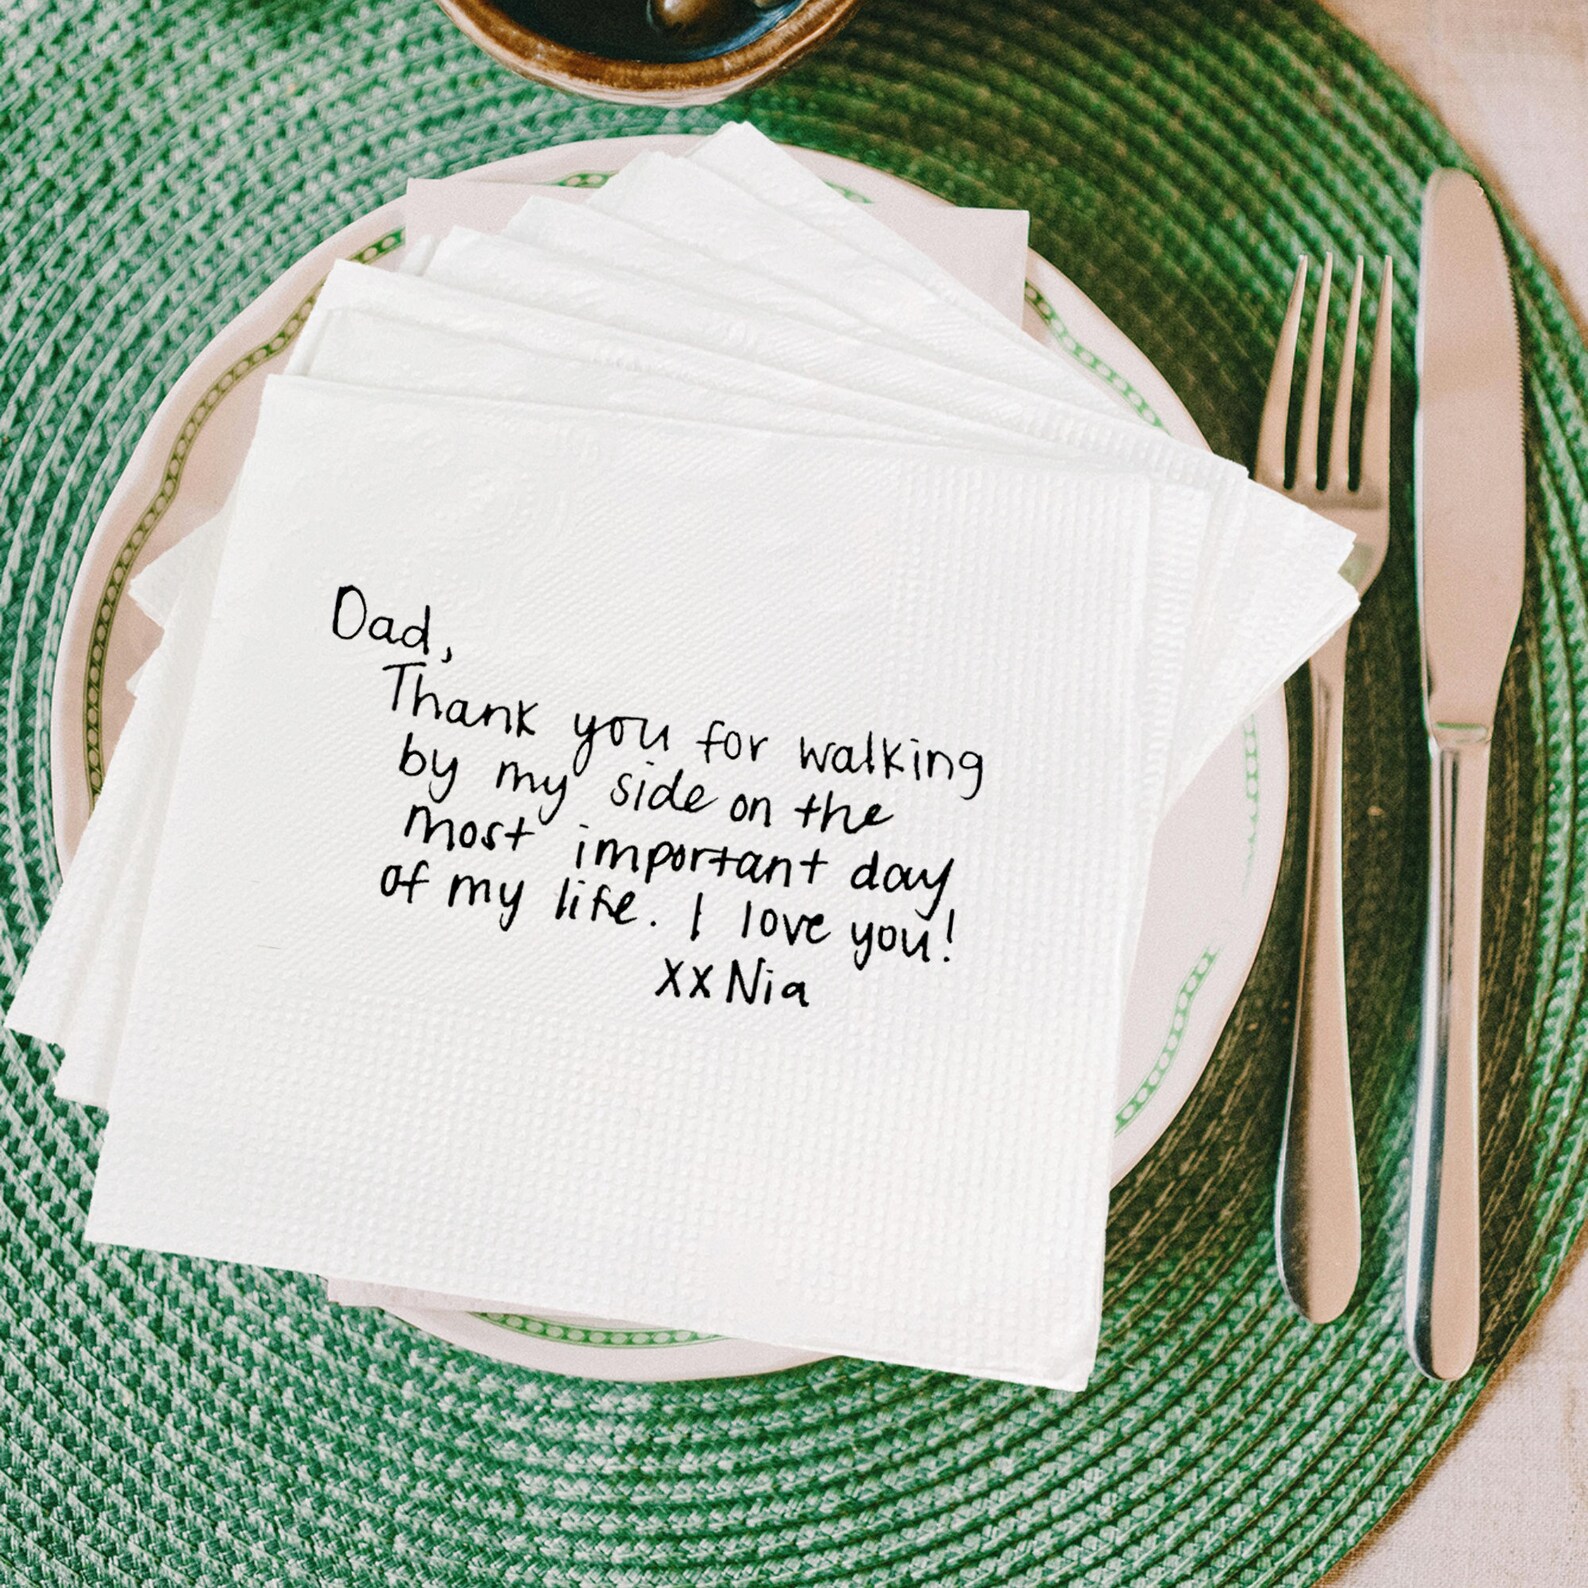 Dad,
Thank you for walking
by my side on the
most important day
of my life. I love you!
xx Nia